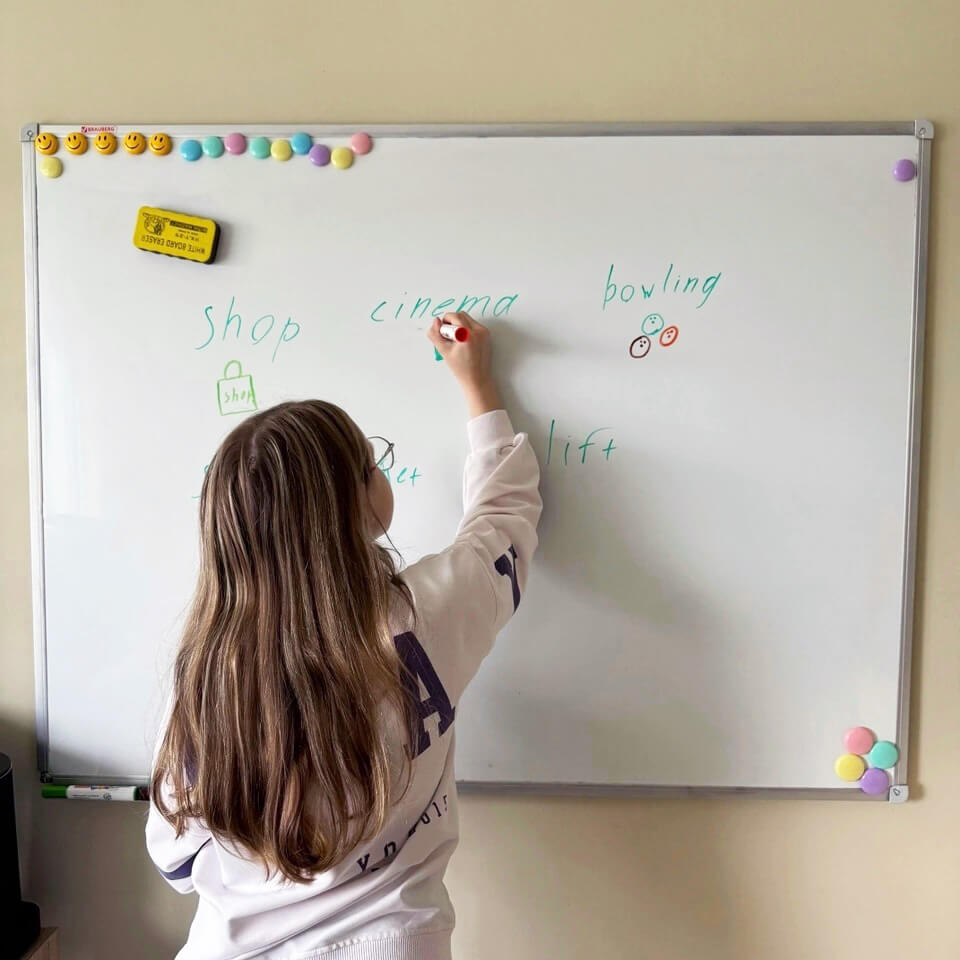 BRAUBERG
WHITE BOARD ERASER
shop
cinema
bowling
shop
lift
A